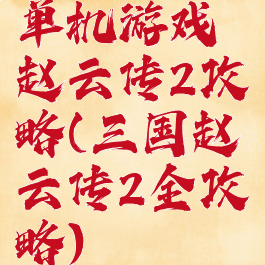 单机游戏
赵云传2攻
略(三国赵
云传2全攻
略)